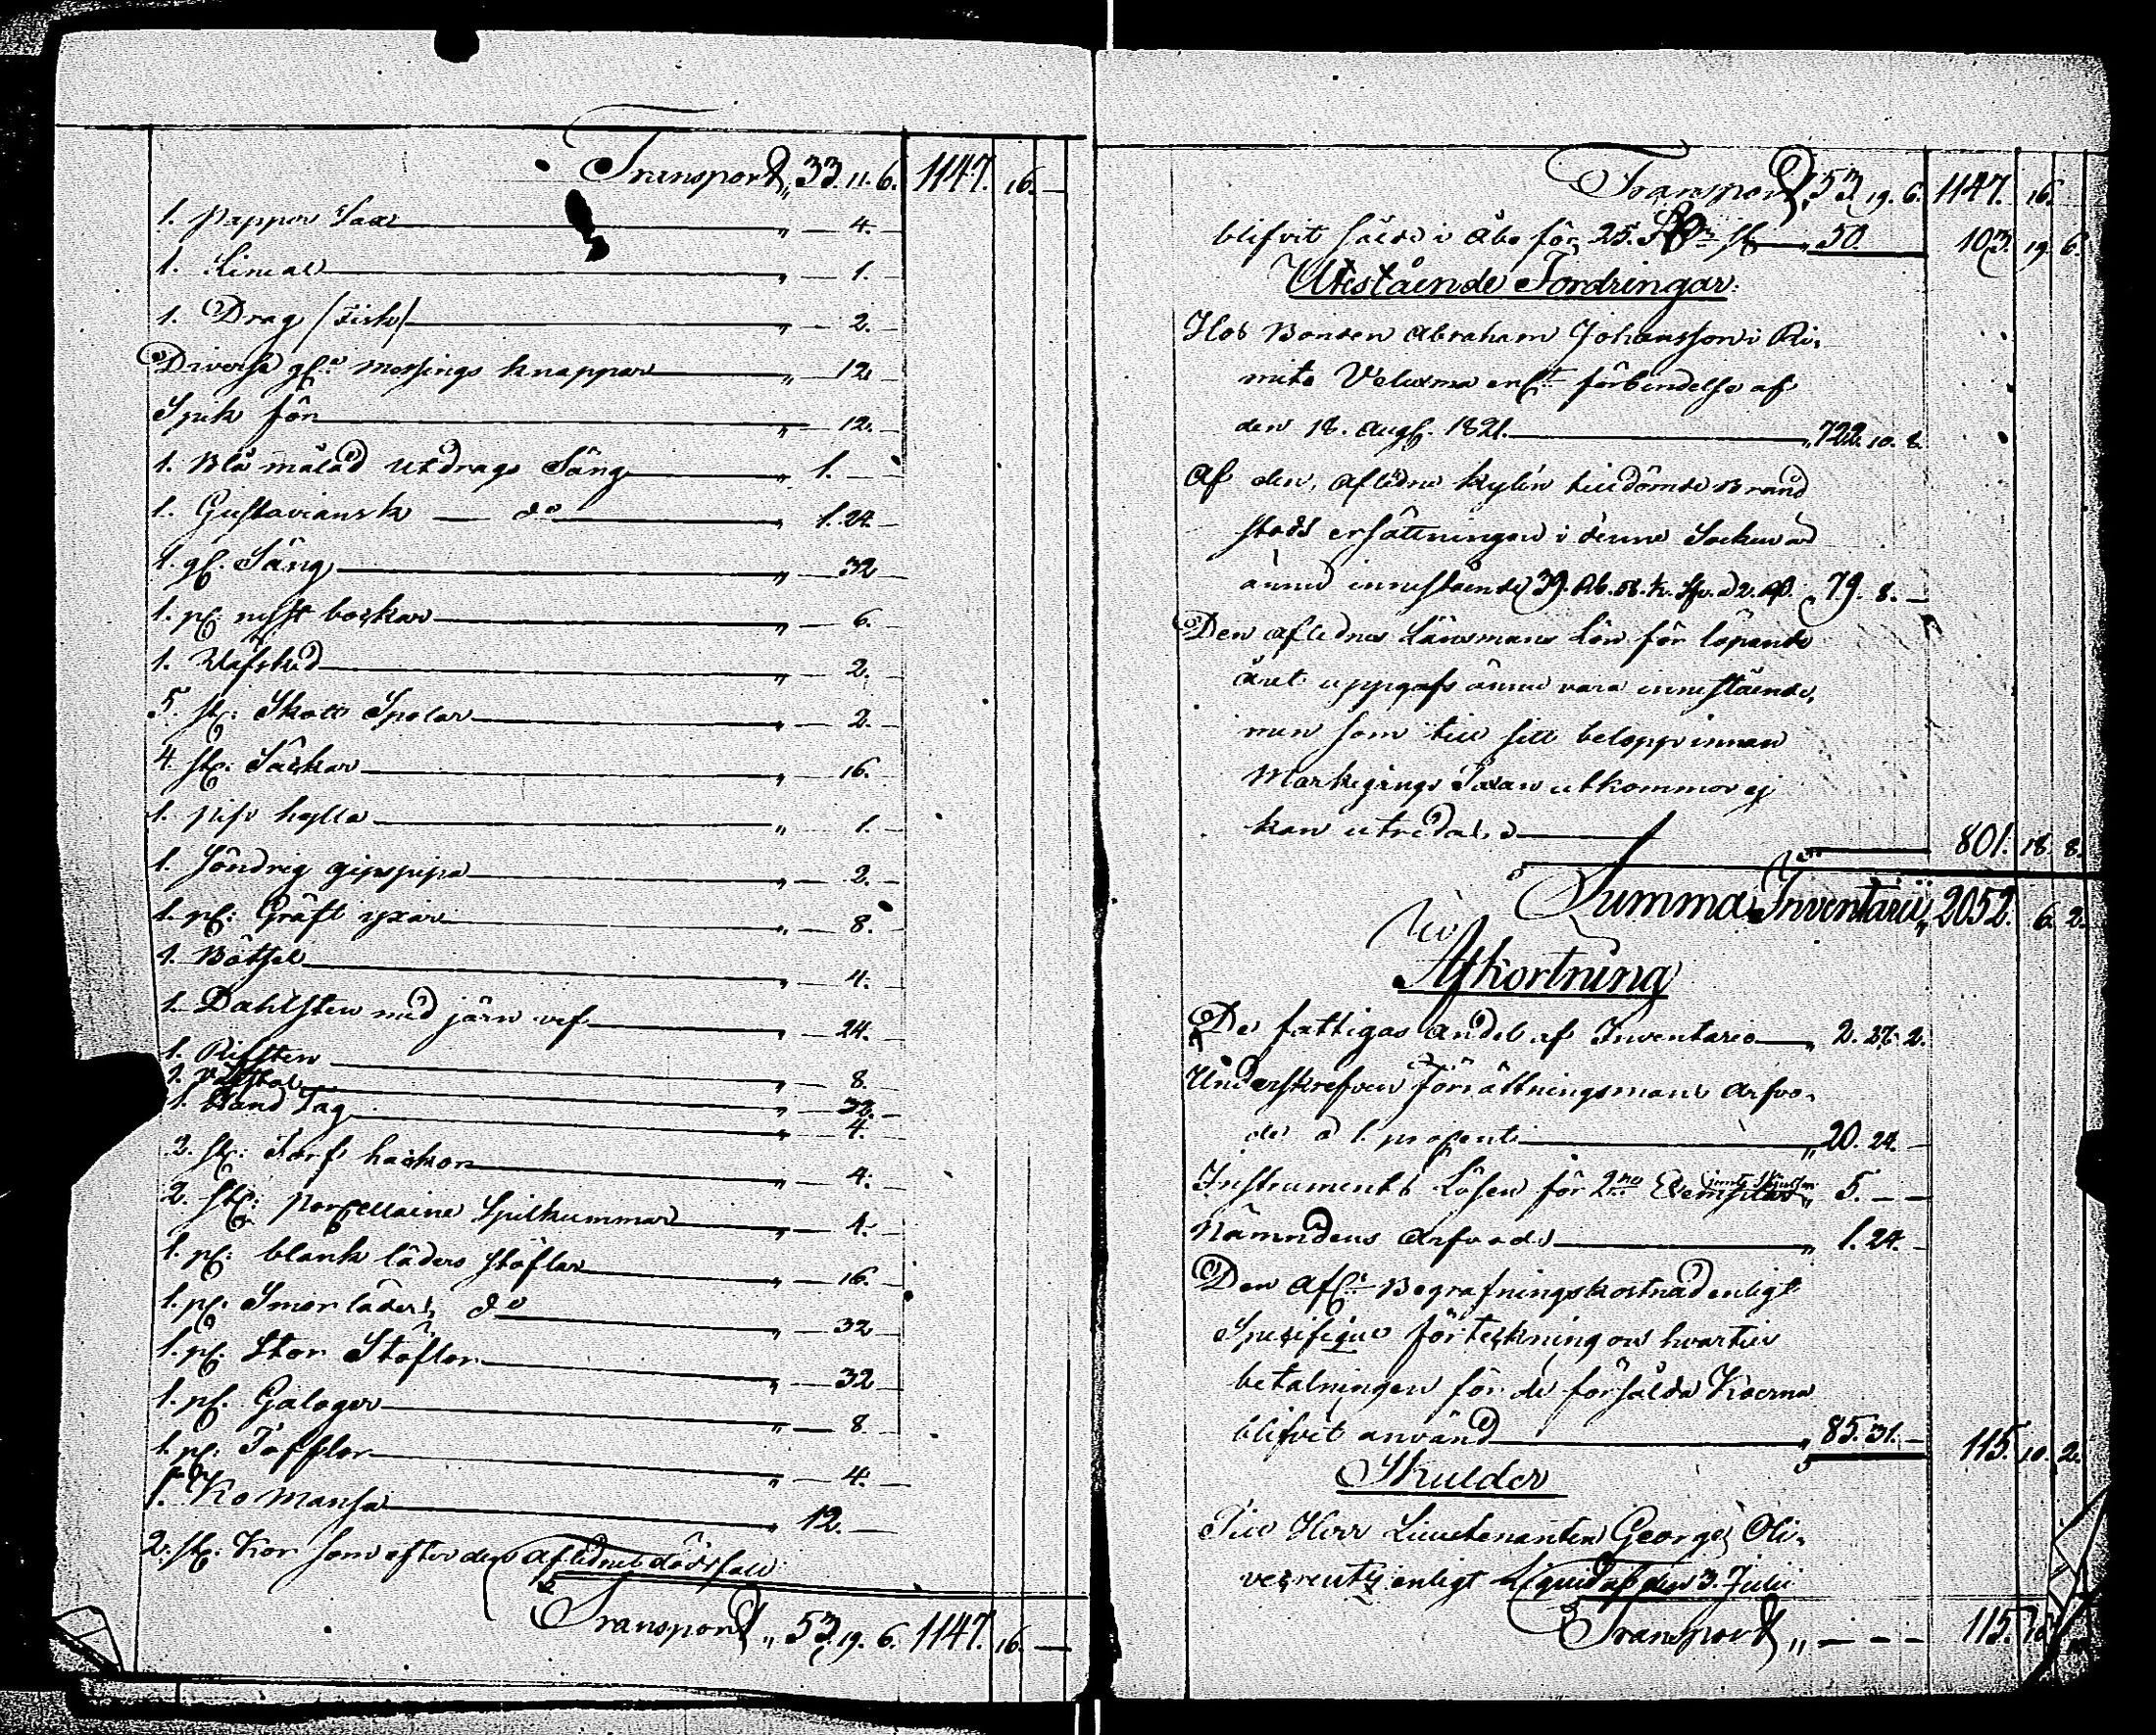 Transport „ 33. 11. 6. 1147. 16. —
1. Pappers Sax „ — 4. —
1. Linial „ — 1. —
1. Drag /Fisk/ „ — 2. —
Diverse gl: messings knappar „ — 12
Spik för „ — 12. —
1. Blå målad utdrags Säng „ 1. —
1. Gustaviansk — do „ 1. 24. —
1. gl. Säng „ — 32
1. pr: bockar „ — 6. —
1. Väfsked „ — 2. —
5. st: Skott Spolar „ — 2. —
4. st: Säckar „ — 16. —
1. pip hylla „ — 1. —
1. Söndrig gipspipa „ — 2. —
1. pr: Gräft yxar „ — 8. —
1. Båtsel „ — 4. —
1. Dahlsten med järn vef „ — 24. —
1. „ — 8. —
1. „ — 32. —
1. Hand Såg „ — 4. —
2. st: Torf hackor „ — 4. —
2. st: Porcellaine Spilkummar „ — 4. —
1. pr: blank läders stöflar „ — 16. —
1. pr. Smorläders do „ — 32
1. pr. Stor Stöflor „ — 32
1. pr. Galoger „ — 8. —
1. pr. Tofflor „ — 4. —
1. Ko Mansa „ 12. —
2. st: Kor som efter den aflednes dödsfall
Transport „ 53. 19. 6. 1147. 16. —
Transport „ 53. 19. 6. 1147. 16.
blifvit sålde i Åbo för 25. st „ 50. 103. 19. 6.
Utestående Fordringar.
Hos Bonden Abraham Johansson i Ri-
mito Veluxma enl:t förbindelse af
den 18. Aug. 1821. „ 722. 10. 8.
Af den, aflidne Kylén tilldömde Brand
stods ersättningen i denne Socken är
ännu innestående 39. Rb. 58. k. Sr. a 2. Rd. „ 79. 8. —
Den aflednes Länsmans Lön för löpande
året uppgafs ännu vara innestående,
men som till sitt belopp innan
Markegångs Taxan utkommer ej
kan utredas, 801. 18. 8.
Summa Inventarii „ 2052. 6. 2.
Afkortning
De fattigas andel af Inventario „ 2. 27. 2.
Underskrefven Förrättningsmans arfvo-
de a 1. procent „ 20. 24. —
Instruments Lösen för 2ne Exemplar „ 5. — —
Nämndens Arfvode „ 1. 24. —
Den afl: Begrafningskostnad enligt
Specifique förteckning och hvartill
betalningen för de försålda Koerna
blifvit använd „ 85. 31. — 115. 10. 2.
Skulder
Till Herr Lieutenanten George Oli-
vecreutz enligt Liquid af den 3. Julii
Transport „ — — — 115. 10